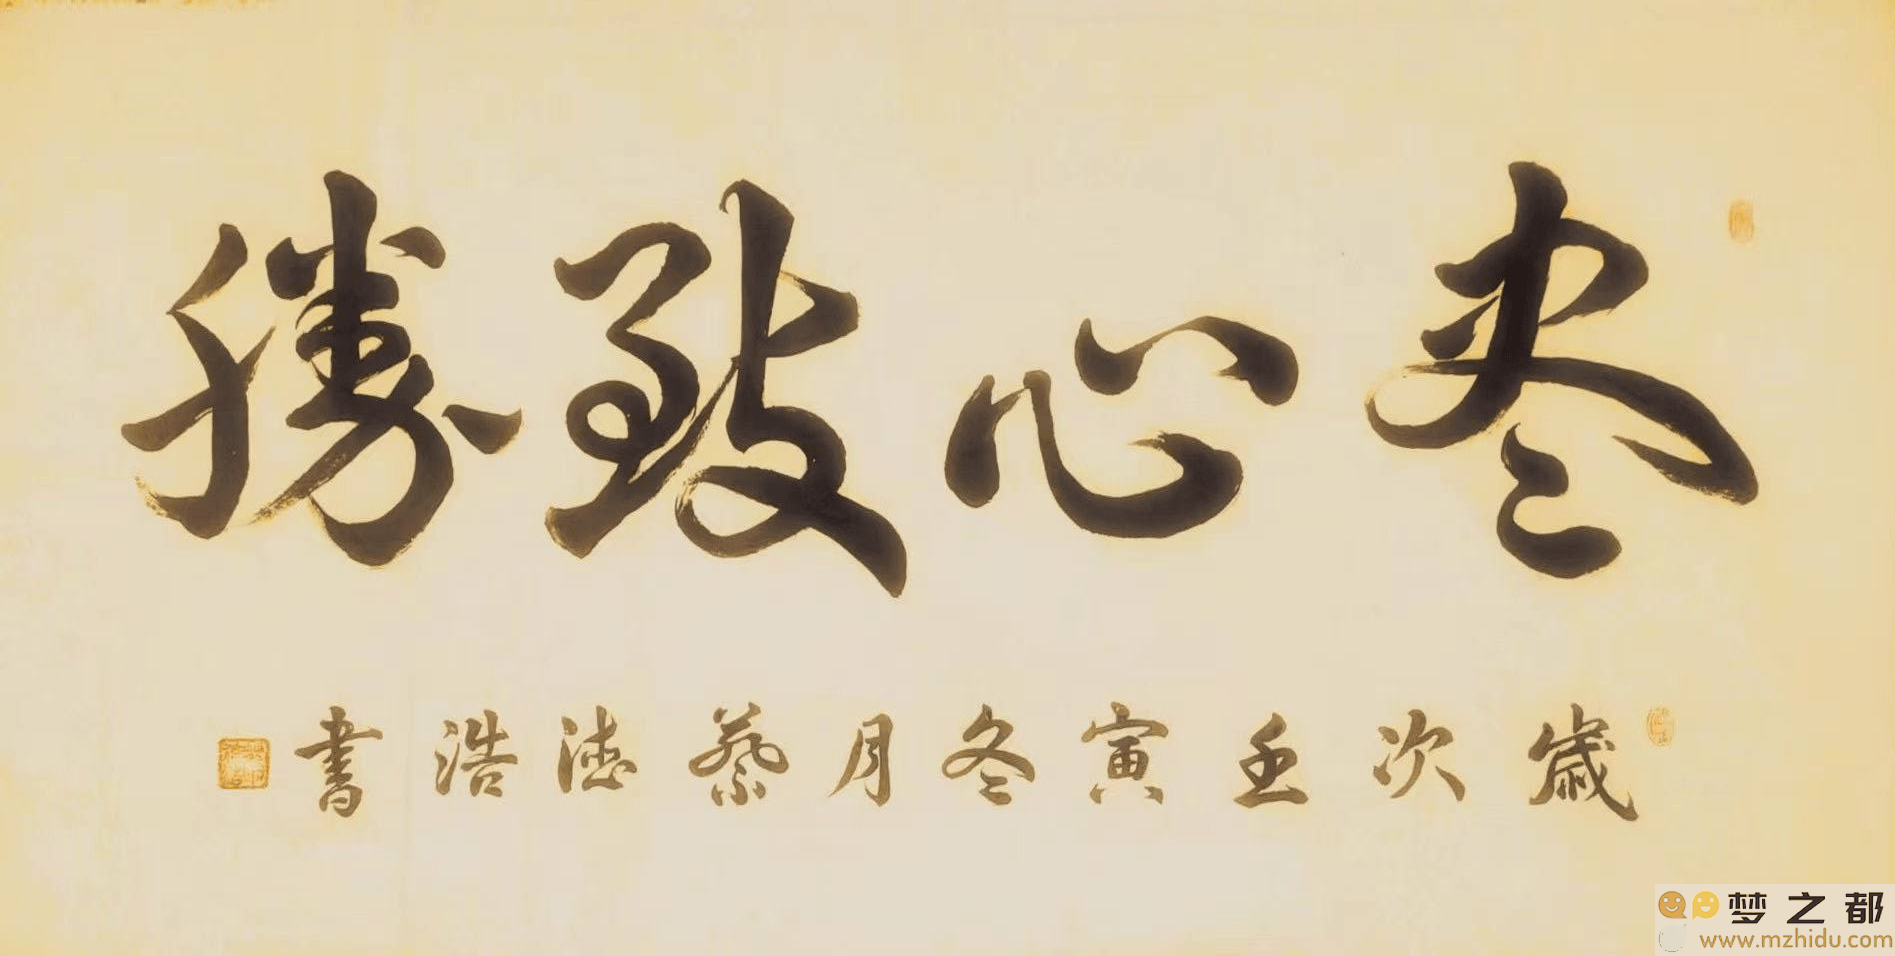 尽心致勝
歲次壬寅冬月蔡德浩書
梦之都
www.mzhidu.com